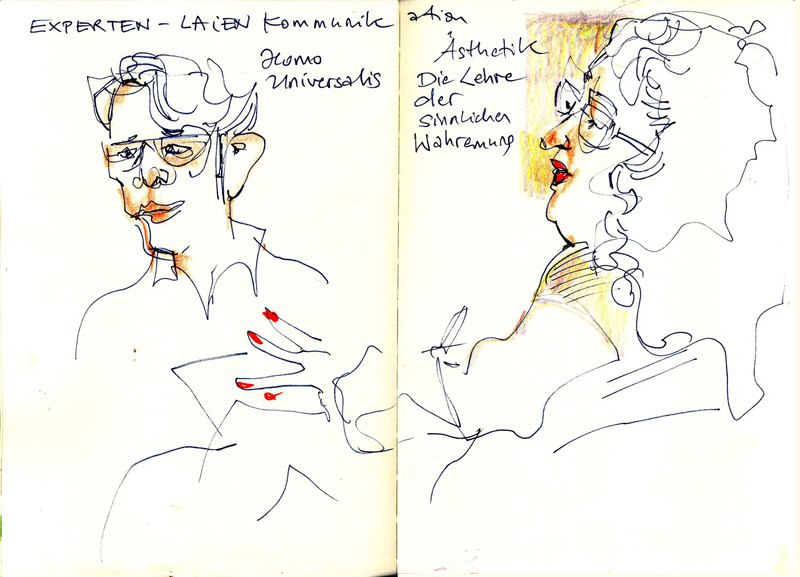 EXPERTEN - LAiEN Kommunikation
Homo
Universalis
Ästhetik
Die Lehre
der
sinnlichen
Wahremung